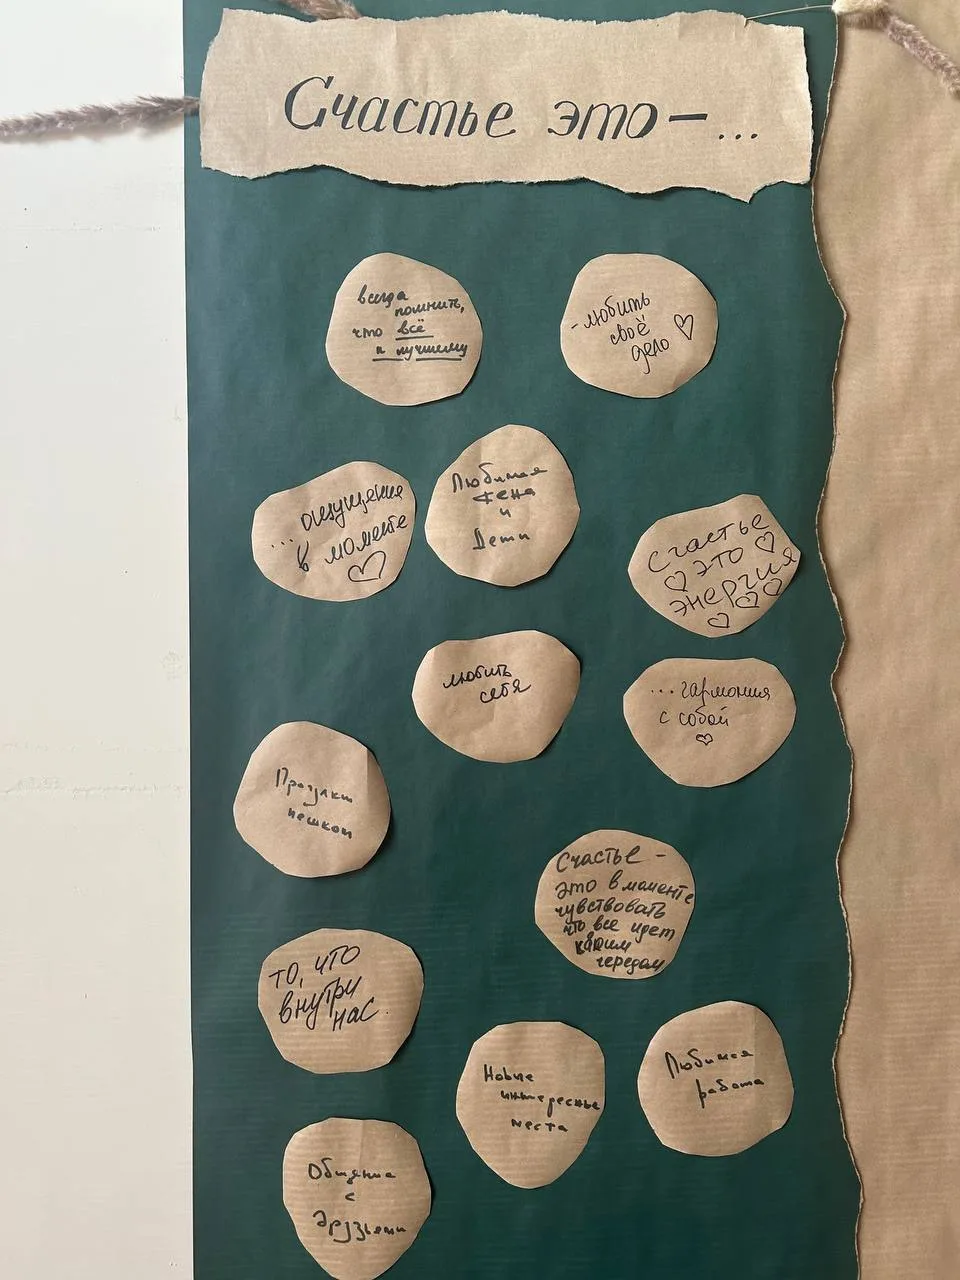 Счастье это-...
всегда
помнить,
что всё
к лучшему
- любить
своё
дело
... ощущения
в моменте
Любимая
жена
и
Дети
Счастье
это
энергия
любить
себя
...гармония
с собой
Прогулки
пешком
Счастье -
это в моменте
чувствовать
что все идет
чередом
то, что
внутри
нас.
Новые
интересные
места
Любимая
работа
Общение
с
друзьями